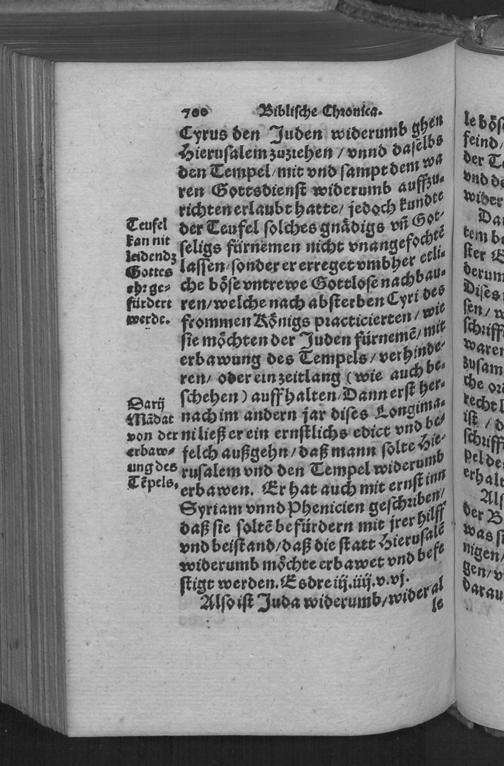 700 Biblische Chronica.
Cyrus den Juden widerumb ghen
Hierusalem zuziehen / vnnd daselbs
den Tempel / mit vnd sampt dem wa
ren Gottsdienst widerumb auffzu-
richten erlaubt hatte / jedoch kundte
der Teufel solches gnädigs vñ Got-
seligs fürnemen nicht vnangefochtẽ
lassen / sonder er erreget vmbher etli-
che böse vntrewe Gottlose nachbau-
ren / welche nach absterben Cyri des
frommen Königs practicierten / wie
sie möchten der Juden fürnemẽ / mit
erbawung des Tempels / verhinde-
ren / oder ein zeitlang (wie auch be-
schehen) auffhalten / Dann erst her-
nach im andern jar dises Longima-
ni ließ er ein ernstlichs edict vnd be-
felch außgehn / daß mann solte Hie-
rusalem vnd den Tempel widerumb
erbawen. Er hat auch mit ernst inn
Syriam vnnd Phenicien geschriben /
daß sie soltẽ befürdern mit jrer hilff
vnd beistand / daß die statt Hierusalẽ
widerumb möchte erbawet vnd befe
stigt werden. Esdre iij. iiij. v. vj.
Also ist Juda widerumb / wider al
le
Teufel
kan nit
leidendz
Gottes
ehr ge-
fürdert
werde.
Darij
Mãdat
von der
erbaw-
ung des
Tẽpels.
le bös
feind /
der Te
vnd de
wider
Da
tem be
ster E
derum
Dises
sen / w
schriff
waren
zusam
che or
recht l
ist / d
schriff
pel de
erhalt
Als
der B
was s
nigen /
gen / v
darau